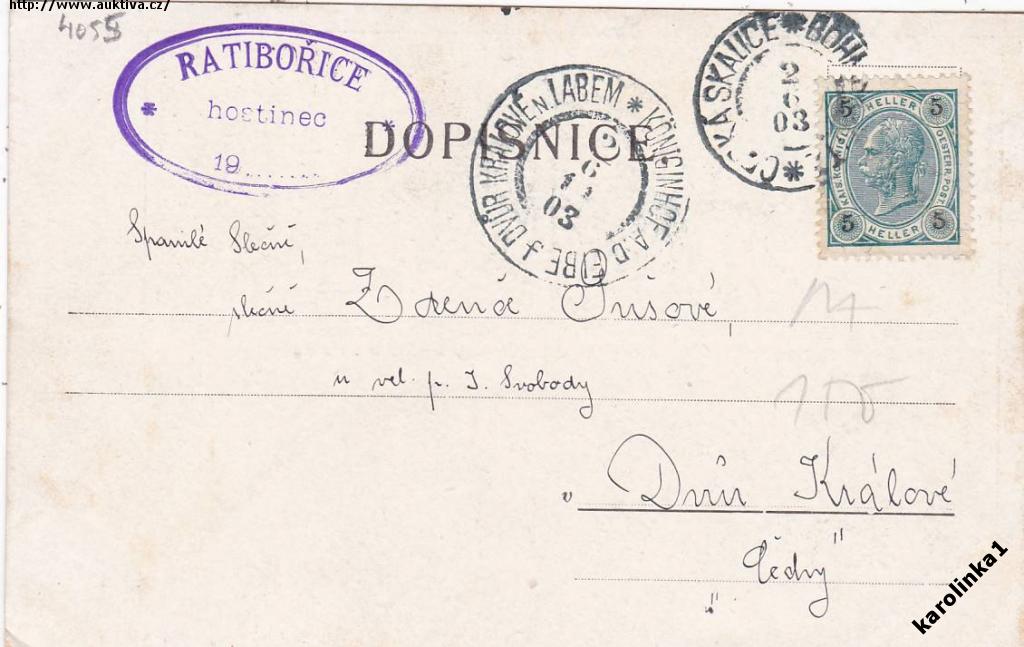 http://www.auktiva.cz/
4055
RATIBOŘICE
hostinec
19........
DOPISNICE
DVŮR KRÁLOVÉ n. LABEM * KÖNIGINHOF A.D. ELBE
2
6
03
ČESKÁ SKALICE * BÖHM
2
6
03
5 HELLER 5
KAIS. KÖNIGL. OESTERR. POST
5 HELLER 5
Spanilé Slečně,
slečně Zdeně Sušové,
u vel. p. J. Svobody
v Dvůr Králové
"Čechy"
karolinka1